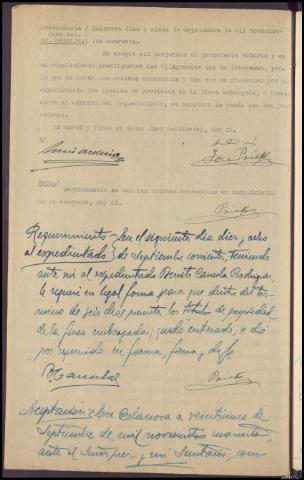 Providencia
Juez acc.
Sr. Ordeiro.
Celanova diez y siete de Septiembre de mil novecien-
tos cuarenta.
Se acepta sin perjuicio el precedente exhorto y en
su cumplimiento practíquense las diligencias que se interesan, para
lo que se darán las órdenes necesarias y una vez se presenten por el
expedientado los títulos de propiedad de la finca embargada, o trans-
curra el término del requerimiento, se acordará lo demás que sea pro-
cedente.
Lo mandó y firma el Señor Juez accidental, doy fé.
Ante mí
José Prieto
Nota.
Seguidamente se dan las órdenes necesarias en cumplimiento
de lo acordado, doy fé.
Prieto
Requerimiento En el siguiente dia diez y ocho
al expedientado de Septiembre corriente, teniendo
ante mi al expedientado Benito Rodriguez,
le requerí en legal forma para que dentro del ter-
mino de seis dias presente los titulos de propiedad
de la finca embargada; quedó enterado, se dió
por requerido en forma, firma y doy fe
Prieto
Aceptacion En Celanova a veintiuno de
Septiembre de mil novecientos cuarenta,
ante el Señor Juez y mi Secretario, com-